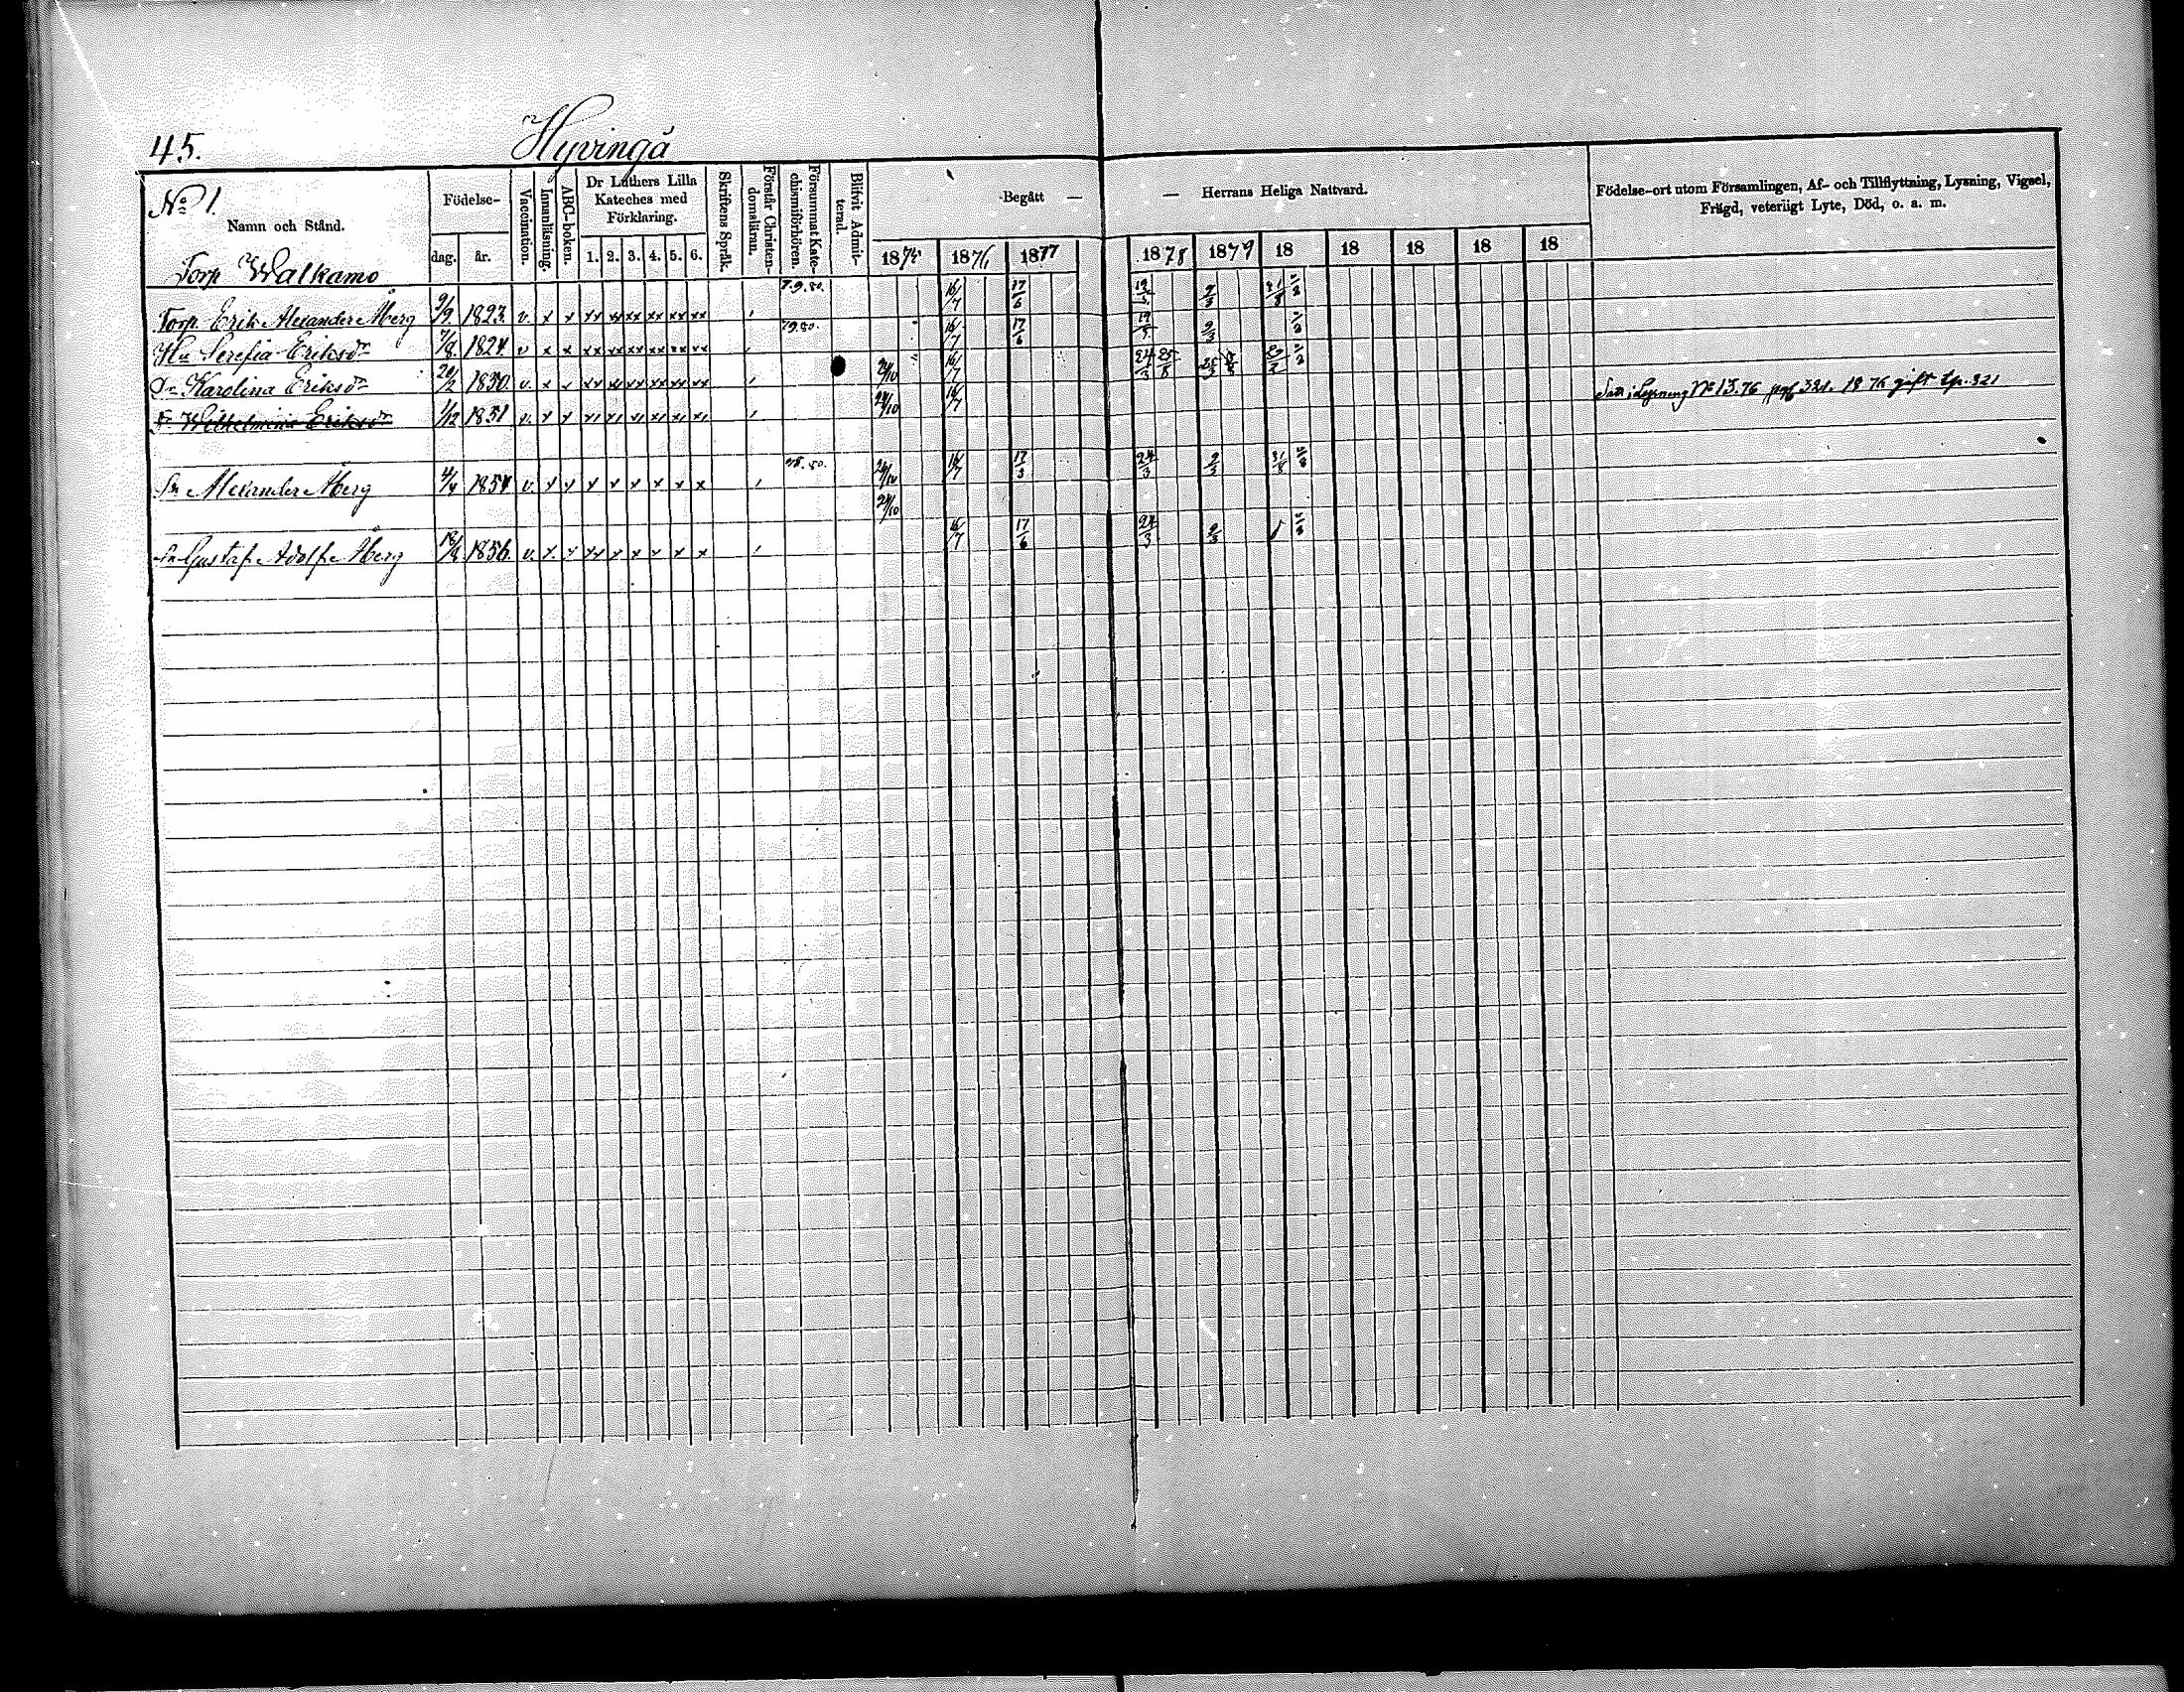 45. Hyvingå
No 1.
Namn och Stånd.
Födelse-
dag. år.
Vaccination.
Innanläsning.
ABC-boken.
Dr Luthers Lilla Kateches med Förklaring.
1. 2. 3. 4. 5. 6.
Skriftens Språk.
Förstår Christendomslärn.
Försummat Katechismiförhören.
Blifvit Admitterad.
Begått — — Herrans Heliga Nattvard.
1875 1876 1877 1878 1879 18 18 18 18 18
Födelse-ort utom Församlingen, Af- och Tillflyttning, Lysning, Vigsel, Frägd, veterligt Lyte, Död, o. a. m.
Torp Walkamo
Torp. Erik Alexander Åberg 9/9 1823. v. x x xx xx xx xx xx xx 7.9.80. 16/7 17/6 19/5 9/3 31/8
Hu Serefia Eriksdr 7/8 1824 v x x xx xx xx xx xx xx 79.80. 16/7 17/6 19/5 9/3
Dr Karolina Eriksdr 20/2 1850. v. x x xx xx xx xx xx xx 24/10 16/7 24/3 25/8
Dr Wilhelmina Eriksdr 1/12 1851 v. x x x1 x1 x1 x1 x1 x1 24/10 16/7 Lysning No 13.76 pag 321. 1876 gift tp. 321
Sn Alexander Åberg 4/4 1854 v. x x x x x x x x 78.80. 24/10 16/7 17/3 24/3 9/3 31/8
24/10
Sn Gustaf Adolf Åberg 18/8 1856 v. x x xx x x x x x 16/7 17/6 24/3 9/3